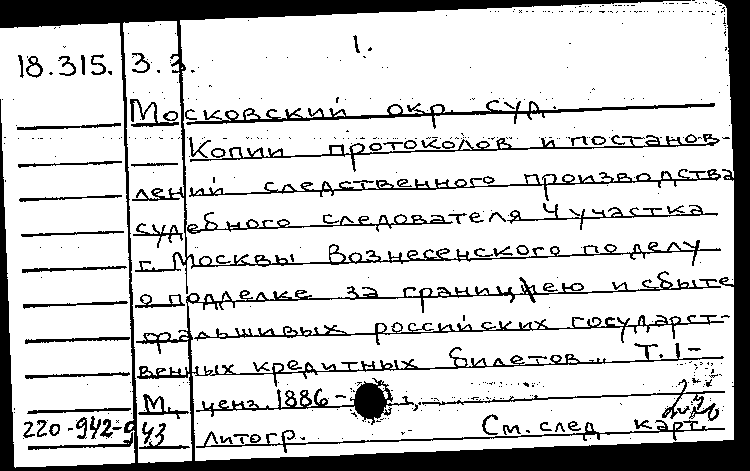 18.315.3.3. 1.
Московский окр. суд.
Копии протоколов и постанов-
лений следственного производства
судебного следователя 4 участка
г. Москвы Вознесенского по делу
о подделке за границею и сбыте
фальшивых российских государст-
венных кредитных билетов... Т. 1-
М., ценз. 1886-
220-942-943 литогр. См. след карт.